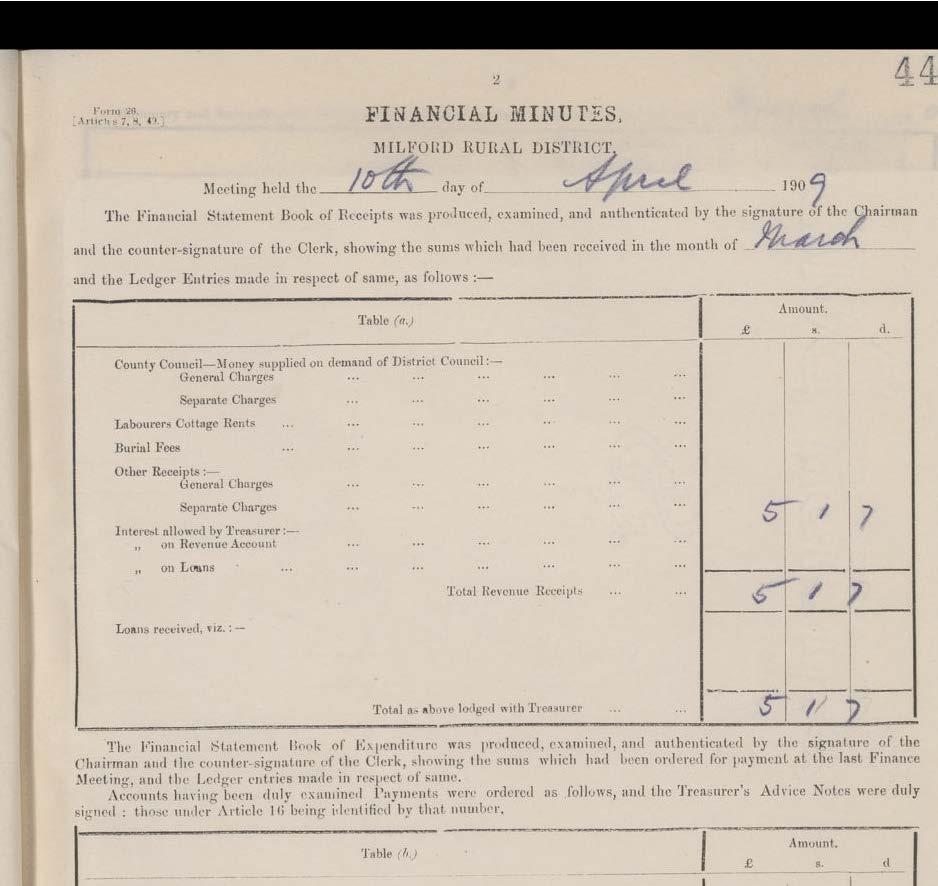 2
44
Form 26.
[Articles 7, 8, 49.]
FINANCIAL MINUTES,
MILFORD RURAL DISTRICT.
Meeting held the 10th day of April 1909
The Financial Statement Book of Receipts was produced, examined, and authenticated by the signature of the Chairman
and the counter-signature of the Clerk, showing the sums which had been received in the month of March
and the Ledger Entries made in respect of same, as follows :—
Table (a.) Amount.
£ s. d.
County Council—Money supplied on demand of District Council :—
General Charges ... ... ... ... ... ...
Separate Charges ... ... ... ... ... ...
Labourers Cottage Rents ... ... ... ... ... ... ...
Burial Fees ... ... ... ... ... ... ...
Other Receipts :—
General Charges ... ... ... ... ... ...
Separate Charges ... ... ... ... ... ... 5 1 7
Interest allowed by Treasurer :—
„ on Revenue Account ... ... ... ... ... ...
„ on Loans ... ... ... ... ... ... ...
Total Revenue Receipts ... ... 5 1 7
Loans received, viz. : —
Total as above lodged with Treasurer ... ... 5 1 7
The Financial Statement Book of Expenditure was produced, examined, and authenticated by the signature of the
Chairman and the counter-signature of the Clerk, showing the sums which had been ordered for payment at the last Finance
Meeting, and the Ledger entries made in respect of same.
Accounts having been duly examined Payments were ordered as follows, and the Treasurer's Advice Notes were duly
signed : those under Article 16 being identified by that number.
Table (b.) Amount.
£ s. d